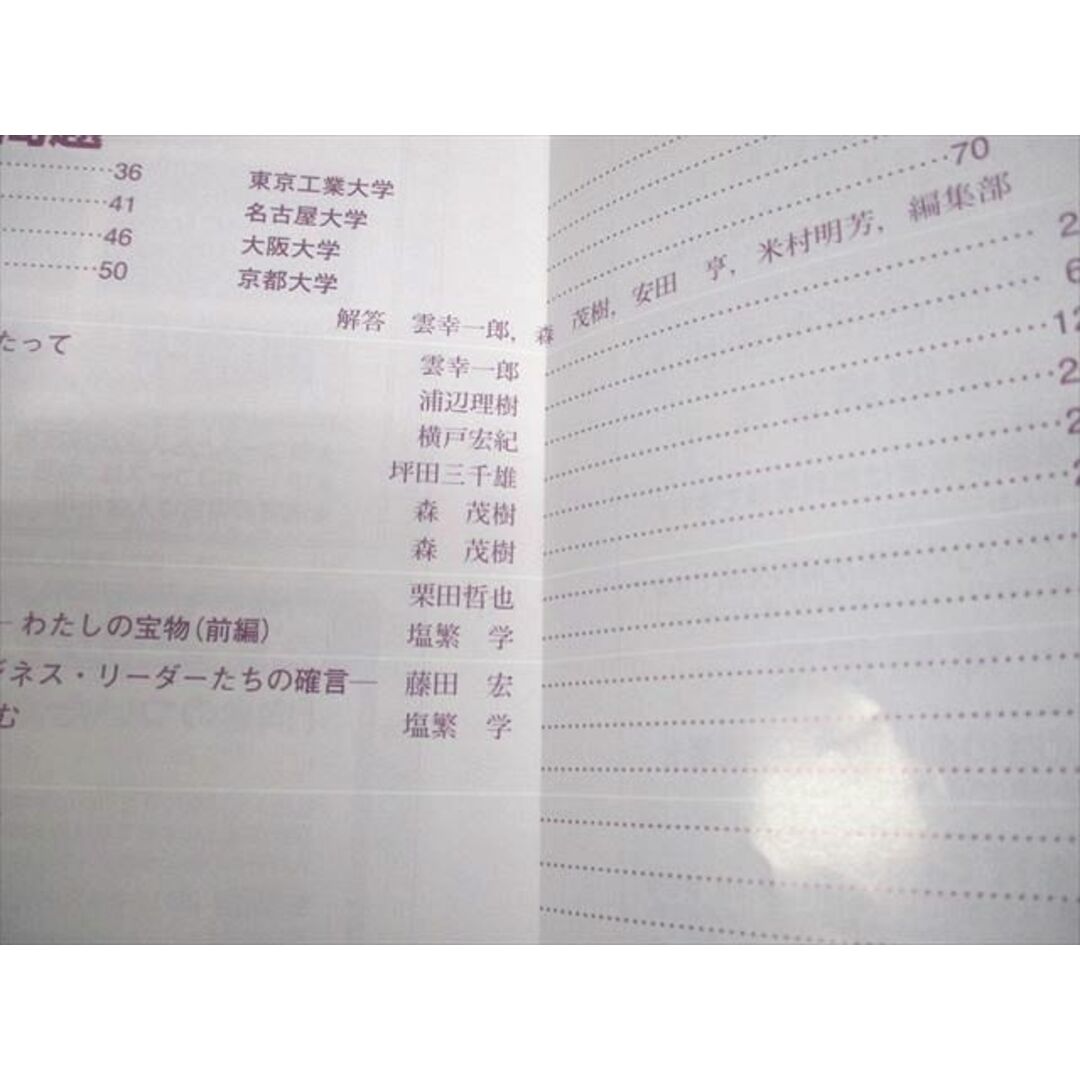 問題
36 東京工業大学
41 名古屋大学
46 大阪大学
50 京都大学
70
解答 雲幸一郎, 森 茂樹, 安田 亨, 米村明芳, 編集部
たって 雲幸一郎
浦辺理樹
横戸宏紀
坪田三千雄
森 茂樹
森 茂樹
栗田哲也
─ わたしの宝物(前編) 塩繁 学
ジネス・リーダーたちの確言─ 藤田 宏
む 塩繁 学